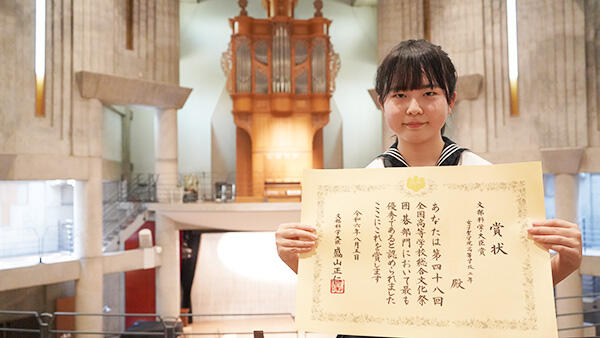 賞状
文部科学大臣賞
女子聖学院高等学校二年
殿
あなたは第四十八回
全国高等学校総合文化祭
囲碁部門において最も
優秀であると認められました
ここにこれを賞します
令和六年八月 日
文部科学大臣 盛山正仁